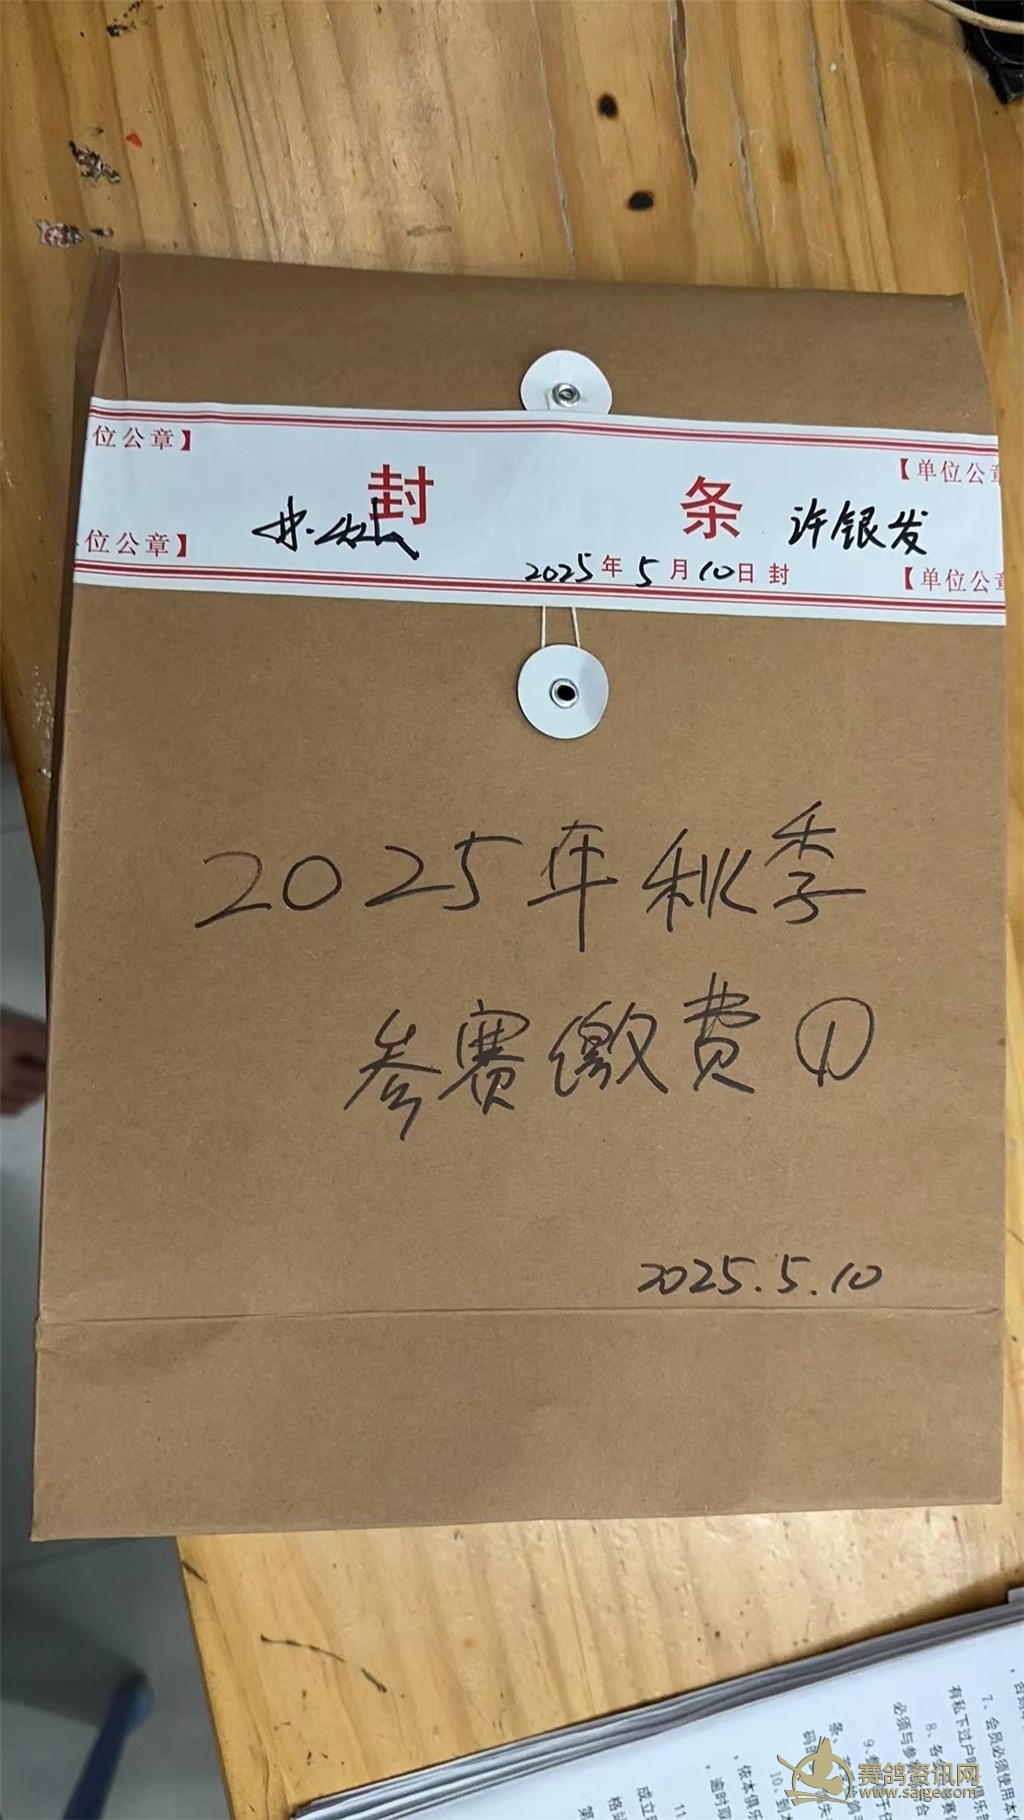 位公章】
【单位公章
封 条
许银发
位公章】
2025年5月10日封
【单位公章
2025年秋季
参赛缴费①
2025.5.10
7、会员必须使用本
有私下过户
8、各
必须与参
9、
10、到
，依本俱乐
11
成立
第
赛鸽资讯网
www.saige.com